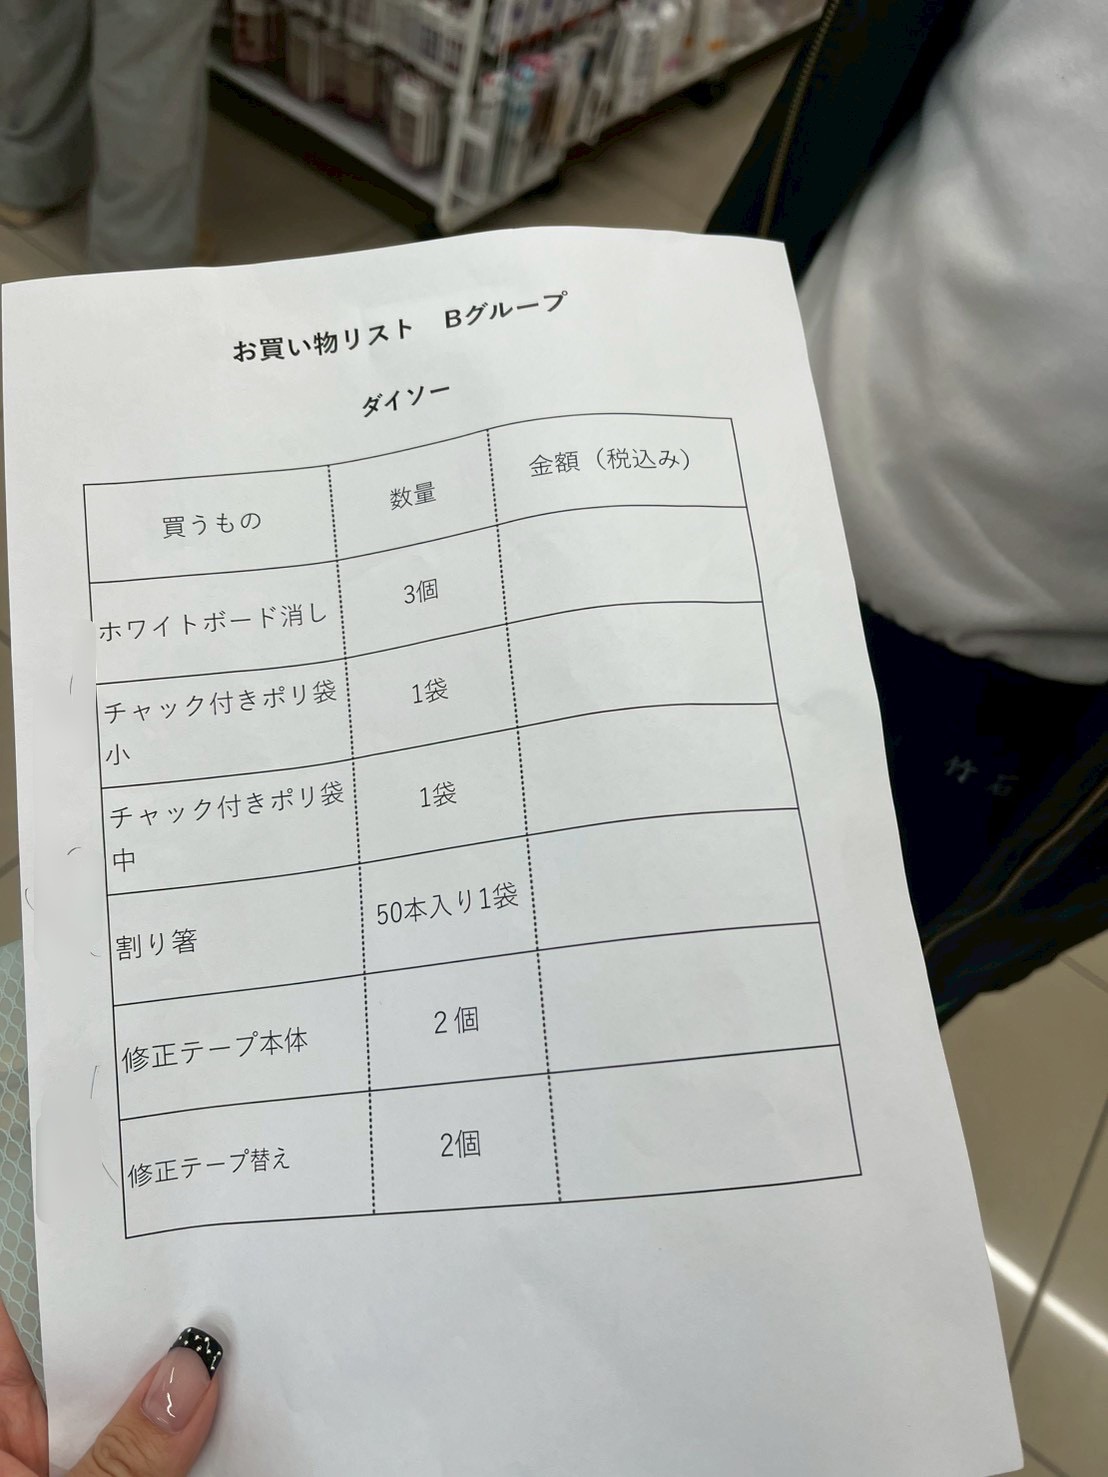 お買い物リスト　Bグループ
ダイソー
買うもの　数量　金額（税込み）
ホワイトボード消し　3個
チャック付きポリ袋　1袋
小
チャック付きポリ袋　1袋
中
割り箸　50本入り1袋
修正テープ本体　2個
修正テープ替え　2個
竹石